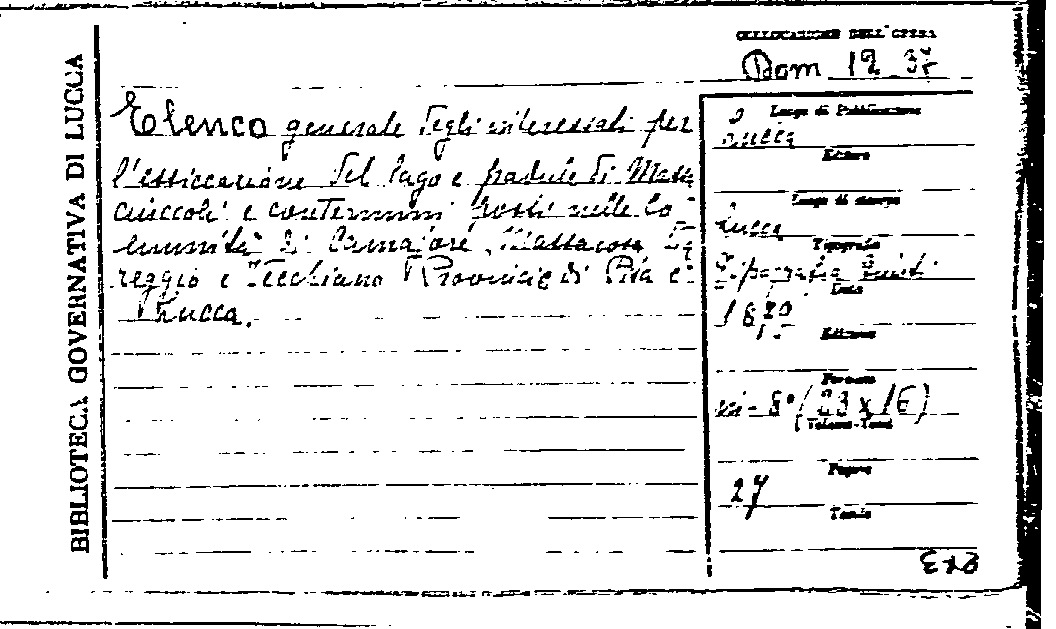 BIBLIOTECA GOVERNATIVA DI LUCCA
COLLOCAZIONE DELL'OPERA
Dom 12 37
Elenco generale degli interessati per
l'essiccazione del lago e padule di Massa
ciuccoli e contermini posti nelle Co-
munità di Camajore, Massarosa Via
reggio e Vecchiano Provincie di Pisa e
Lucca.
Luogo di Pubblicazione
Lucca
Editore
Luogo di stampa
Lucca
Tipografia
Tipografia Giusti
Data
18
Edizione
Formato
in-8° (23 x 16)
Volume-Tomi
Pagine
27
Tavole